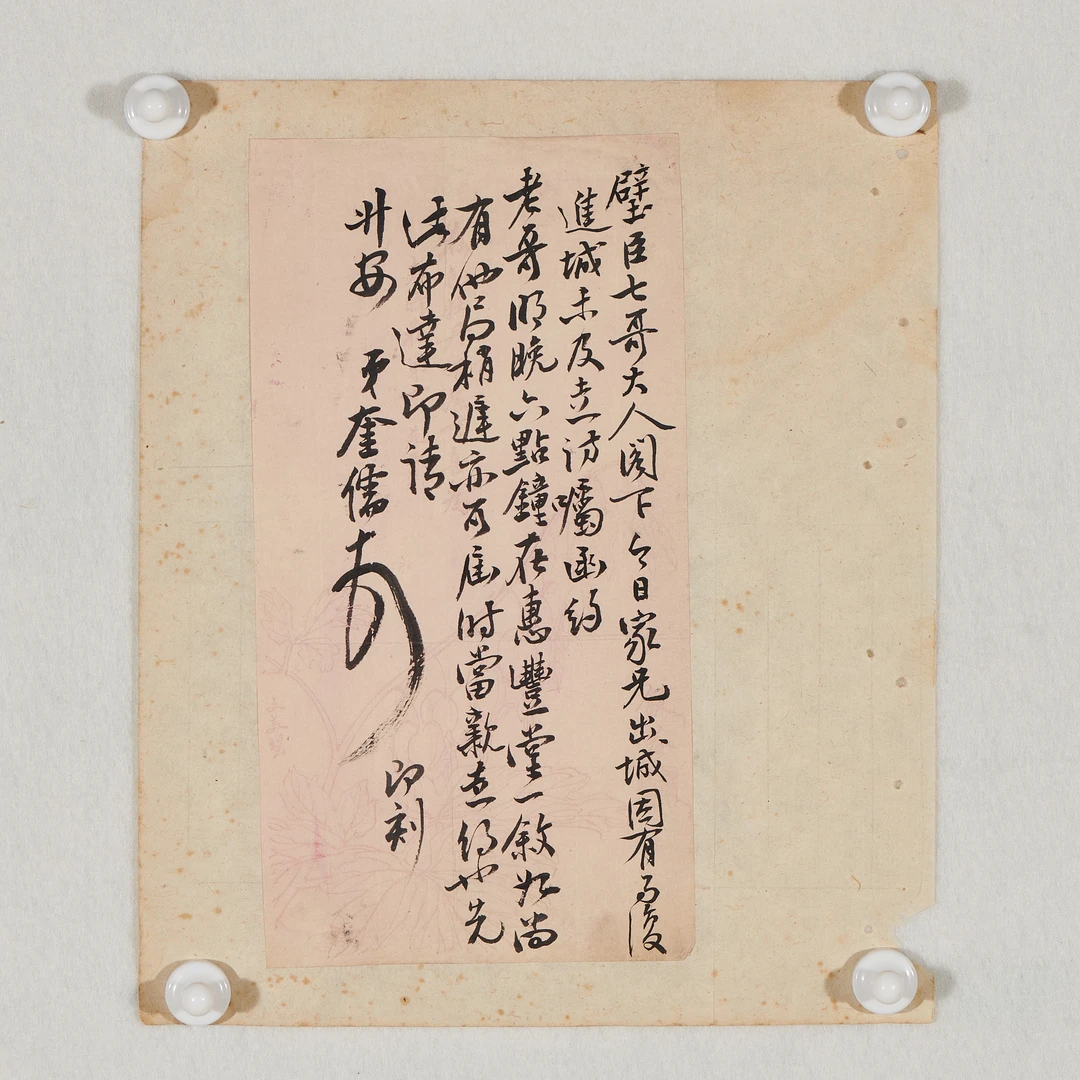 璧臣七哥大人閣下今日家兄出城因有事復
進城未及走訪囑函約
老哥明晚六點鐘在惠豐堂一敘如尚
有他局稍遲亦可屆時當親走約也先
此布達即請
升安
弟奎儒
即刻